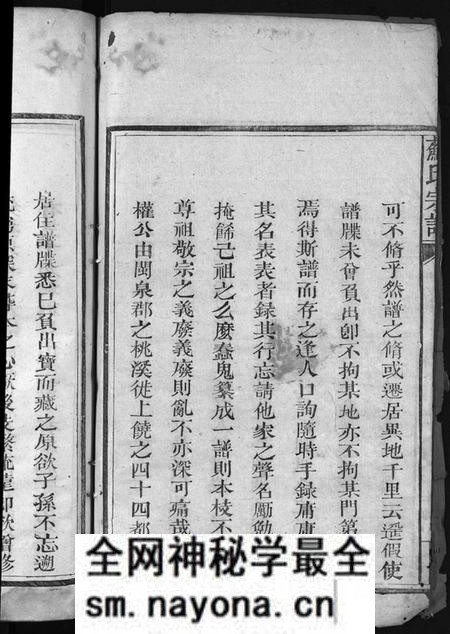 蘇氏宗譜
可不脩乎然譜之脩或遷居異地千里云遥假使
譜牒未曾負出卽不拘某地亦不拘某門第
焉得斯譜而存之逢人口詢隨時手録庸庸
其名表表者録其行忘請他家之聲名勵勉
掩餙己祖之么麼蠢鬼纂成一譜則本枝不
尊祖敬宗之義廢義廢則亂不亦深可痛哉
權公由閩泉郡之桃溪徙上饒之四十四都
居住譜牒悉已負出寶而藏之原欲子孫不忘遡
全网神秘学最全
sm.nayona.cn